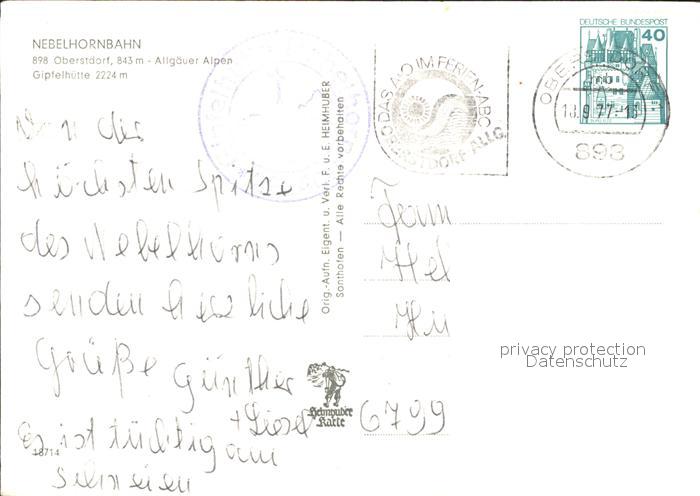 NEBELHORNBAHN
898 Oberstdorf, 843 m - Allgäuer Alpen
Gipfelhütte 2224 m
DEUTSCHE BUNDESPOST
40
O DAS A·O IM FERIEN-ABC
OBERSTDORF/ALLG.
OBERSTDORF
18.9.77-18
898
Von der
höchsten Spitze
des Nebelhorns
senden herzliche
Grüße Günther
+ Liesel
Es ist tüchtig am
schneien
18714
Orig.-Aufn. Eigent. u. Verl. F. u. E. HEIMHUBER
Sonthofen — Alle Rechte vorbehalten
Heimhuber
Karte
Fam
Hel
6799
privacy protection
Datenschutz